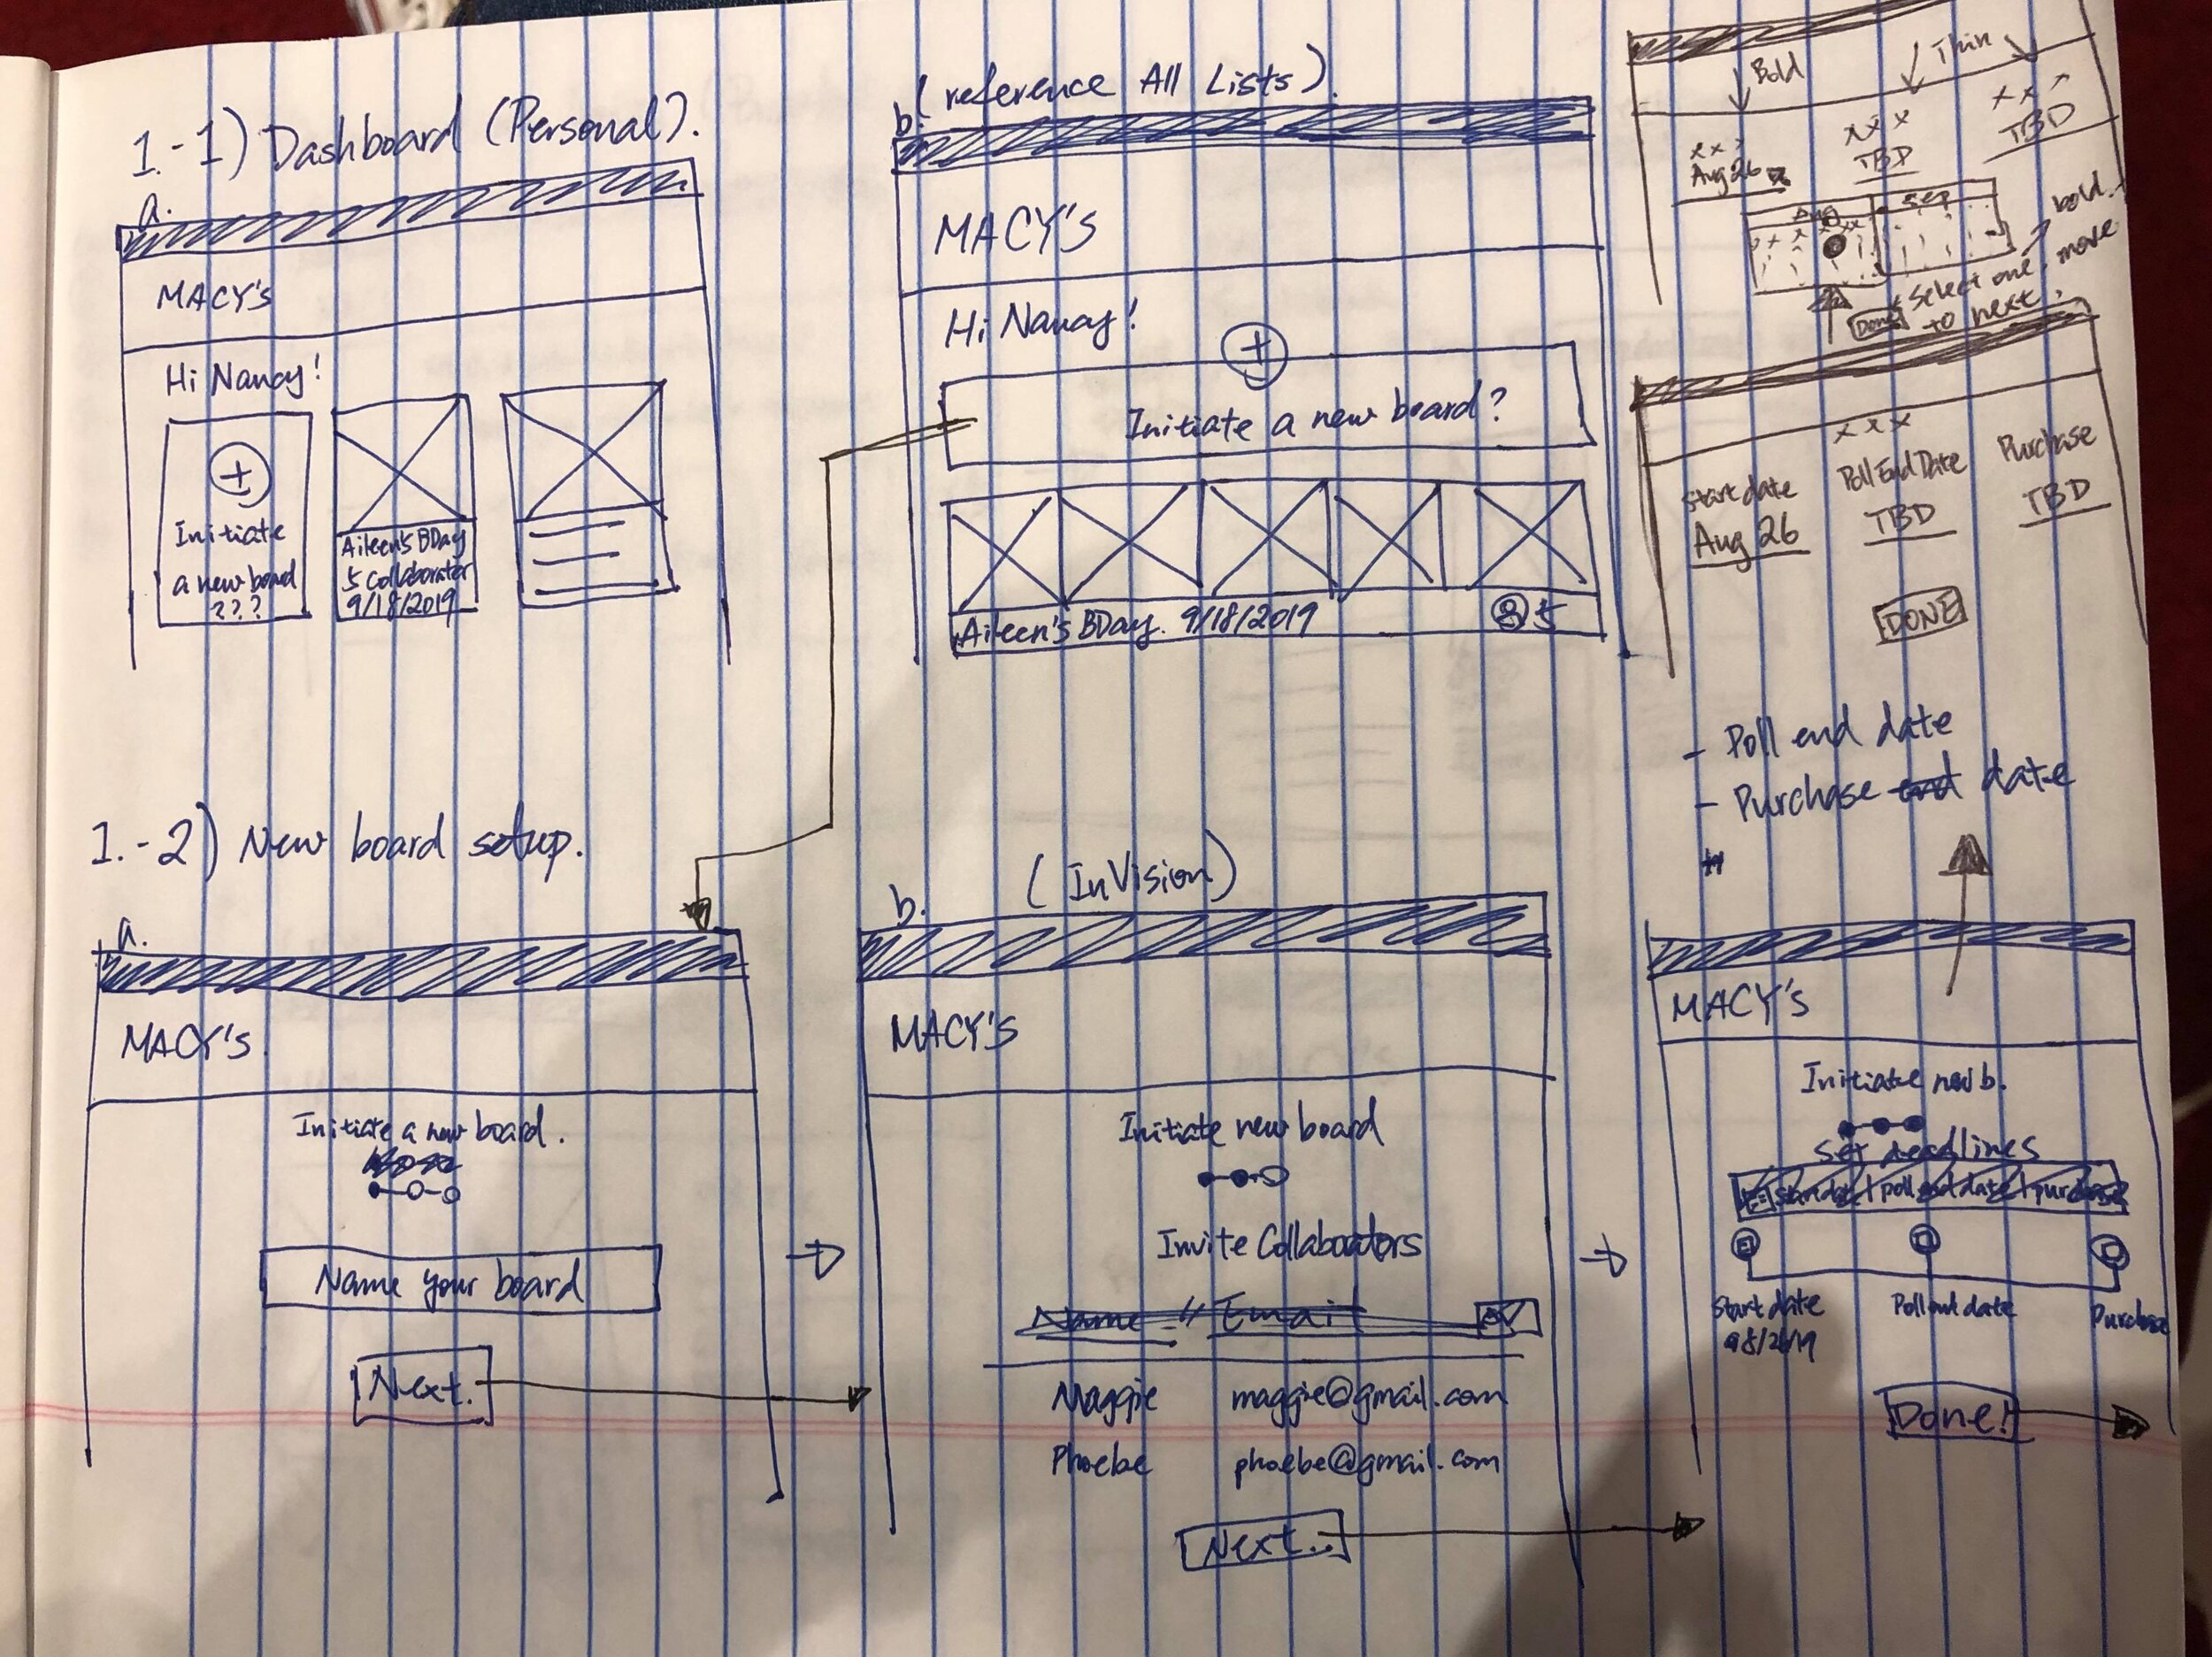 1.-1) Dashboard (Personal).
a.
MACY'S
Hi Nancy!
Initiate
a new board
???
Aileen's BDay
5 Collaborator
9/18/2019
b. (reference All Lists).
MACY'S
Hi Nancy!
Initiate a new board?
Aileen's BDay. 9/18/2019 5
Bold
Thin
xxx
Aug 26
xxx
TBD
xxx
TBD
Aug
Sep
bold.
Done
Select one, move
to next.
xxx
Start date
Aug 26
Poll End Date
TBD
Purchase
TBD
DONE
- Poll end date
- Purchase end date
1.-2) New board setup.
a.
MACY'S
Initiate a new board.
Name your board
Next.
b. (InVision)
MACY'S
Initiate new board
Invite Collaborators
Name // Email
Maggie maggie@gmail.com
Phoebe phoebe@gmail.com
Next..
MACY'S
Initiate new b.
Set deadlines
start date | poll end date | purchase
Start date
Poll end date
Purchase
Done!